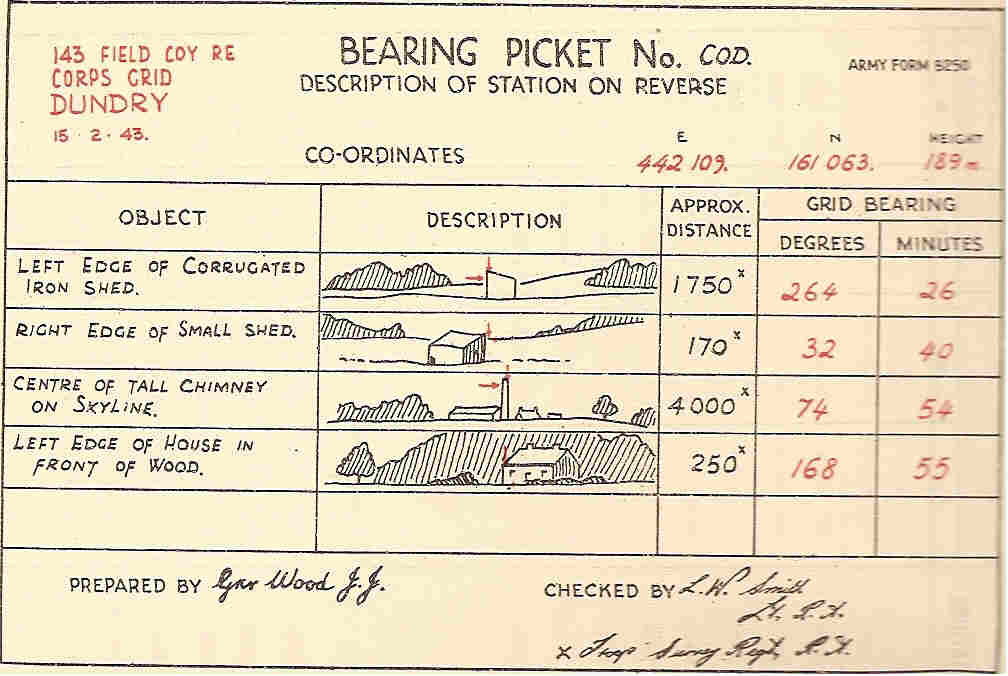 143 FIELD COY RE
CORPS GRID
DUNDRY
15 · 2 · 43.
BEARING PICKET No. COD.
DESCRIPTION OF STATION ON REVERSE
ARMY FORM B250
E N HEIGHT
CO-ORDINATES 442 109. 161 063. 189 m
OBJECT DESCRIPTION APPROX. DISTANCE GRID BEARING
DEGREES MINUTES
LEFT EDGE OF CORRUGATED
IRON SHED. 1750ˣ 264 26
RIGHT EDGE OF SMALL SHED. 170ˣ 32 40
CENTRE OF TALL CHIMNEY
ON SKYLINE. 4000ˣ 74 54
LEFT EDGE OF HOUSE IN
FRONT OF WOOD. 250ˣ 168 55
PREPARED BY Gnr Wood J.J.
CHECKED BY L.W. Smith
Lt. R.A.
Survey Regt, R.A.